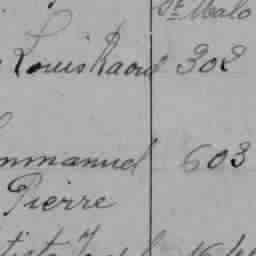 St Malo
Louis Raoul 302
mmanuel 603
Pierre